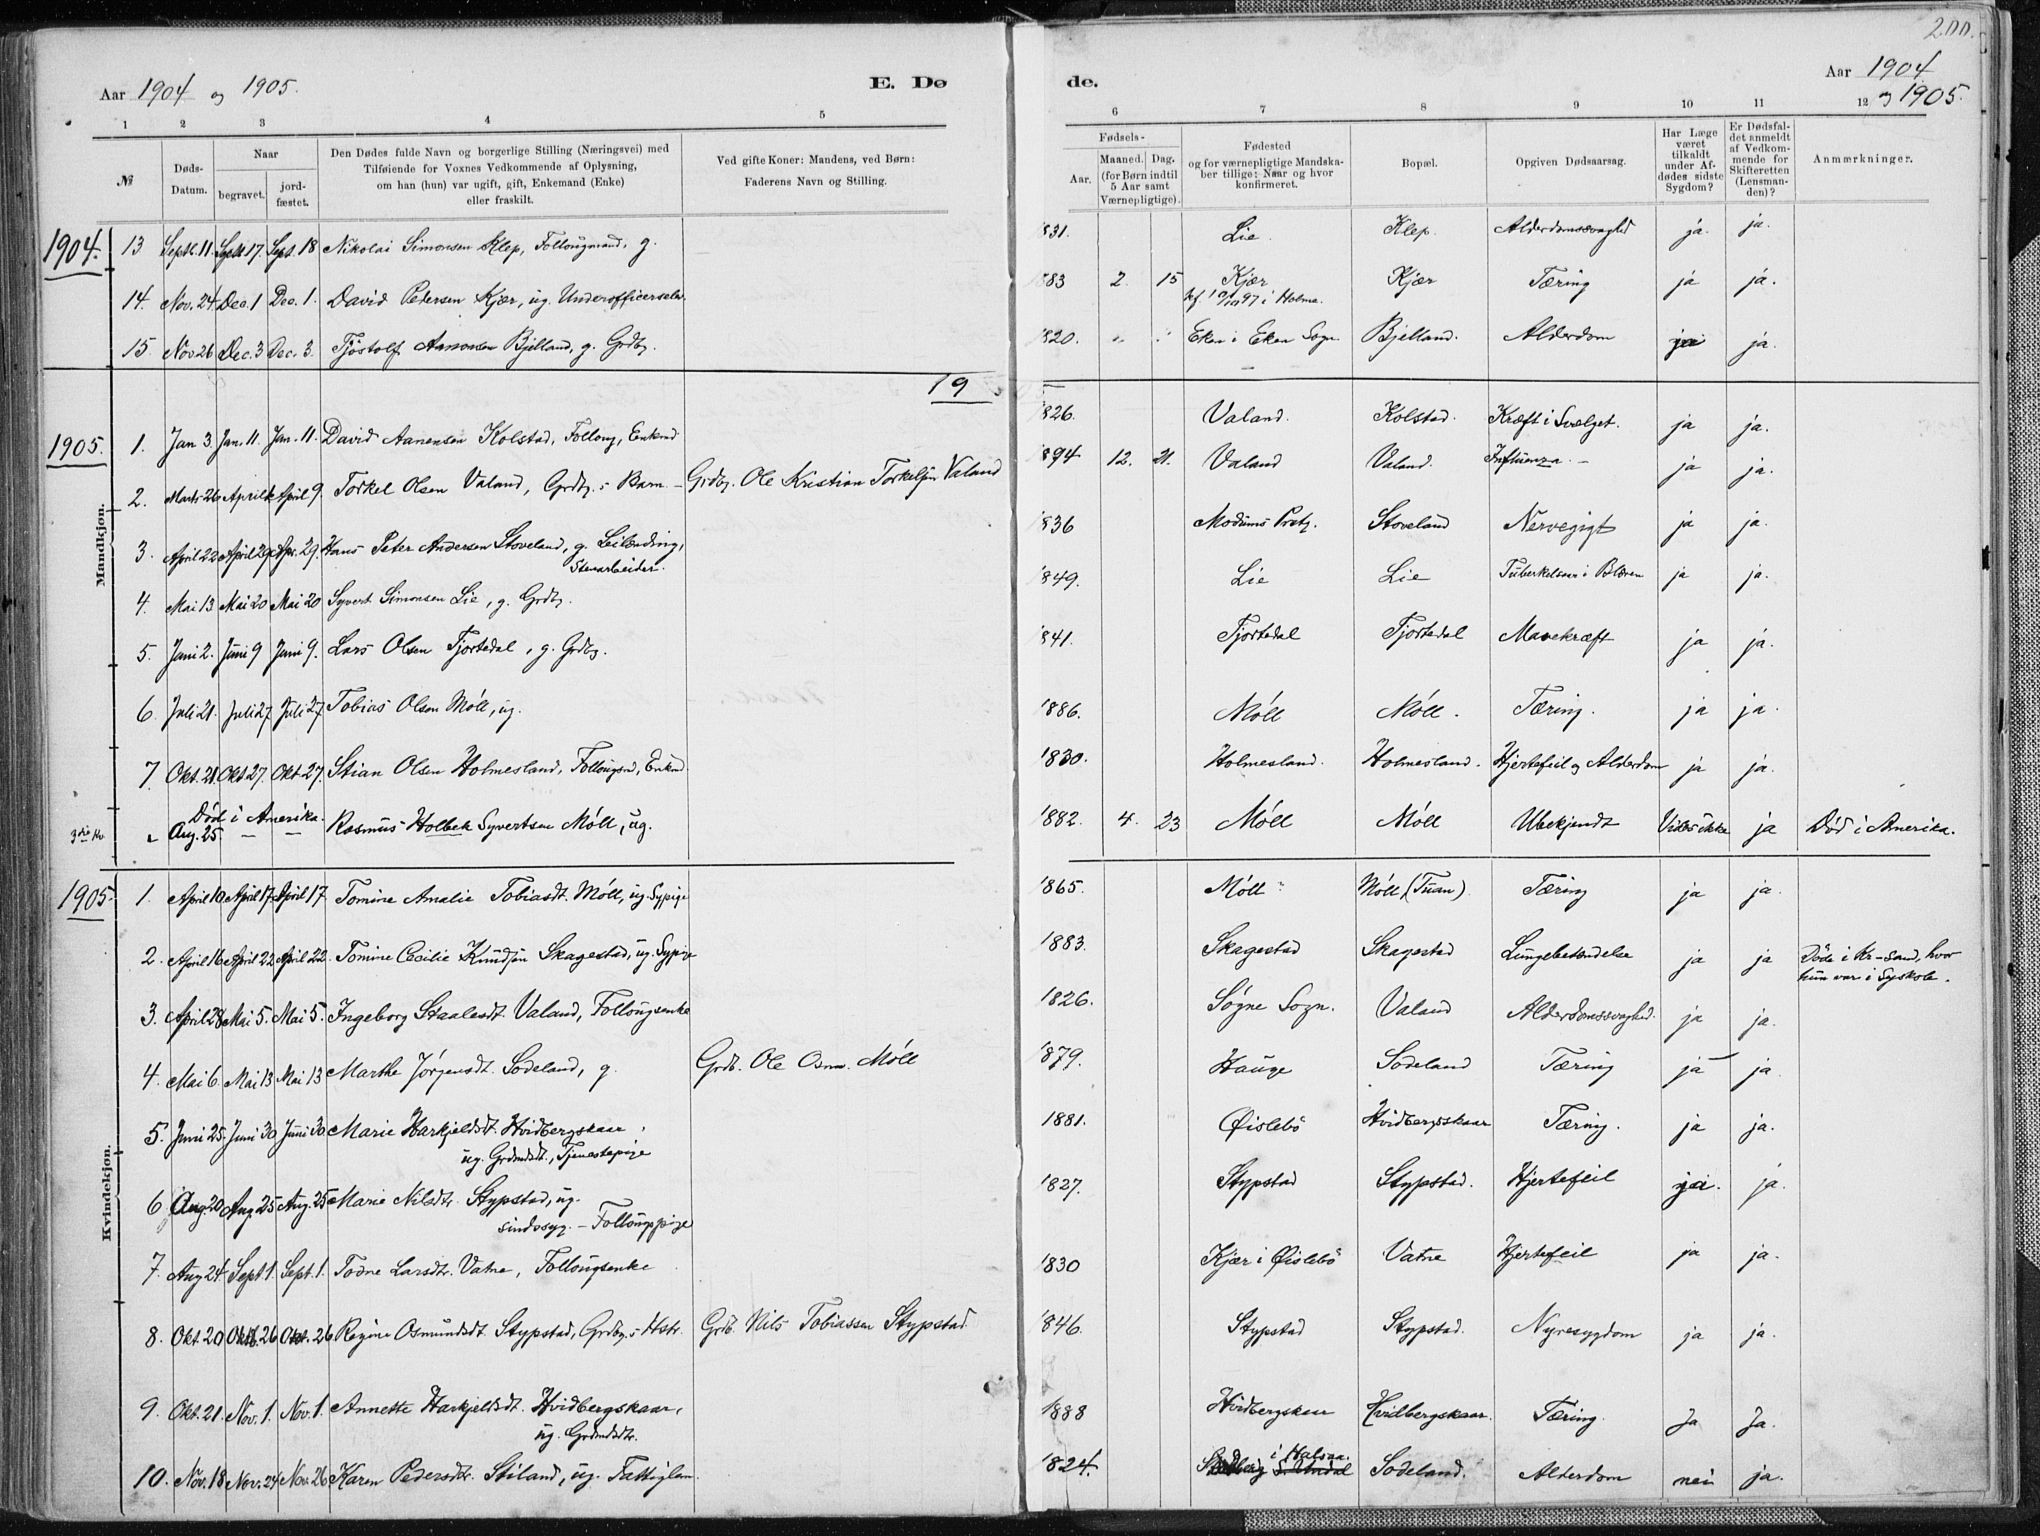 200.
Aar 1904 og 1905.
E. Dø
de.
Aar 1904
og 1905.
1 2 3 4 5 6 7 8 9 10 11 12
№
Døds-Datum.
Naar
begravet.
jord-fæstet.
Den Dødes fulde Navn og borgerlige Stilling (Næringsvei) med
Tilføiende for Voxnes Vedkommende af Oplysning,
om han (hun) var ugift, gift, Enkemand (Enke)
eller fraskilt.
Ved gifte Koner: Mandens, ved Børn:
Faderens Navn og Stilling.
Fødsels-
Aar.
Maaned. Dag.
(for Børn indtil
5 Aar samt
Værnepligtige).
Fødested
og for værnepligtige Mandska-
ber tillige: Naar og hvor
konfirmeret.
Bopæl.
Opgiven Dødsaarsag.
Har Læge
været
tilkaldt
under Af-
dødes sidste
Sygdom?
Er Dødsfal-
det anmeldt
af Vedkom-
mende for
Skifteretten
(Lensman-
den)?
Anmærkninger.
1904.
13 Septb. 11. Septb. 17. Sept. 18 Nikolai Simonsen Klep, Follougmand, g. 831. Lie. Klep. Alderdomssvaghed ja. ja.
14. Nov. 24 Dec. 1 Dec. 1. David Pedersen Kjær, ug. Underofficerselv. 883 2. 15 Kjær Kjær Tæring ja ja.
kf. 10/10 97 i Holme.
15. Nov. 26 Dec. 3 Dec. 3. Tjøstolf Aanonsen Bjelland, g. Grdbg. 1820. " " Eken i Eken Sogn Bjelland. Alderdom ja.
19
1905.
Mandkjøn.
1. Jan 3. Jan. 11. Jan. 11. David Aanensen Kolstad, Folloug, Enkmd 1826. Valand. Kolstad. Kræft i Svælget. ja ja.
2. Marts 26 April April 9. Torkel Olsen Valand, Grdbg.s Barn – Grdbg. Ole Kristian Torkelsen Valand 1894 12. 21. Valand Valand. Influenza. – ja ja.
3. April 22 April 29 Apr. 29. Hans Peter Andersen Stoveland, g. Leilænding, 1836 Modums Prstg. Stoveland Nervegigt ja ja.
Stenarbeider.
4. Mai 13 Mai 20 Mai 20 Syvert Simonsen Lie, g. Grdbg. 1849. Lie Lie Tuberkelose i Blæren ja ja.
5. Juni 2. Juni 9 Juni 9. Lars Olsen Fjortedal, g. Grdbg. 1841. Fjortedal Fjortedal Mavekræft ja ja.
6. Juli 21. Juli 27 Juli 27 Tobias Olsen Möll, ug. 1886. Möll Möll. Tæring. ja ja.
7. Okt. 21 Okt 27. Okt 27. Stian Olsen Holmesland, Follougsmd, Enkmd 1830. Holmesland. Holmesland. Hjertefeil og Alderdom ja ja.
Död i Amerika.
" Aug. 25 – – Rasmus Holbek Syvertsen Möll, ug. 1882. 4. 23 Möll Möll Ubekjendt Vides ikke ja Död i Amerika.
1905.
Kvindekjøn.
1. April 10 April 17. April 17 Tomine Amalie Tobiasdt. Möll, ug. Sypige 1865. Möll Möll (Tuan). Tæring ja ja.
2. April 16 April 22 April 22. Tomine Cecilie Knudsen Skagestad, ug. Sypige 1883. Skagestad Skagestad Lungebetændelse ja ja Döde i Kr-Sand, hvor
hun var i Syskole.
3. April 28 Mai 5. Mai 5. Ingeborg Staalesdt. Valand, Follougsenke 1826. Søgne Sogn. Valand Alderdomssvaghed. ja ja.
4. Mai 6. Mai 13 Mai 13 Marthe Jörgensdt. Sodeland, g. Grdb. Ole Osm. Möll 1879. Hauge Sodeland Tæring ja ja.
5. Juni 25. Juni 30 Juni 30. Marie Harkjeldsdt. Hvidbergskaar 1881. Øislebö Hvidbergskaar Tæring. ja ja.
ug. Grdmdsdt., Tjenestepige
6. Aug. 20 Aug 25 Aug. 25 Marie Nilsdtr. Stypstad, ug. 1827. Stypstad Stypstad. Hjertefeil ja. ja.
sindssyg. – Follougspige
7. Aug 24. Sept 1. Sept. 1. Todne Larsdtr. Vatne, Follougsenke 1830 Kjær i Øislebö Vatne Hjertefeil ja ja.
8. Okt. 20 Oktb. 26 Okt. 26 Regine Osmundsdt. Stypstad, Grdbg.s Hstr. Grdb. Nils Tobiassen Stypstad. 1846. Stypstad Stypstad. Nyresygdom ja ja.
9. Okt. 21 Nov. 1. Nov. 1. Annette Harkjeldsdt. Hvidbergskaar, 1888 Hvidbergskaar Hvidbergskaar. Tæring. Ja Ja.
ug. Grdmdsdtr.
10. Nov. 18 Nov. 24 Nov. 26 Karen Pedersdtr. Stiland, ug. Fattiglem. 1824. i Halsaa. Sodeland. Alderdom nei ja.